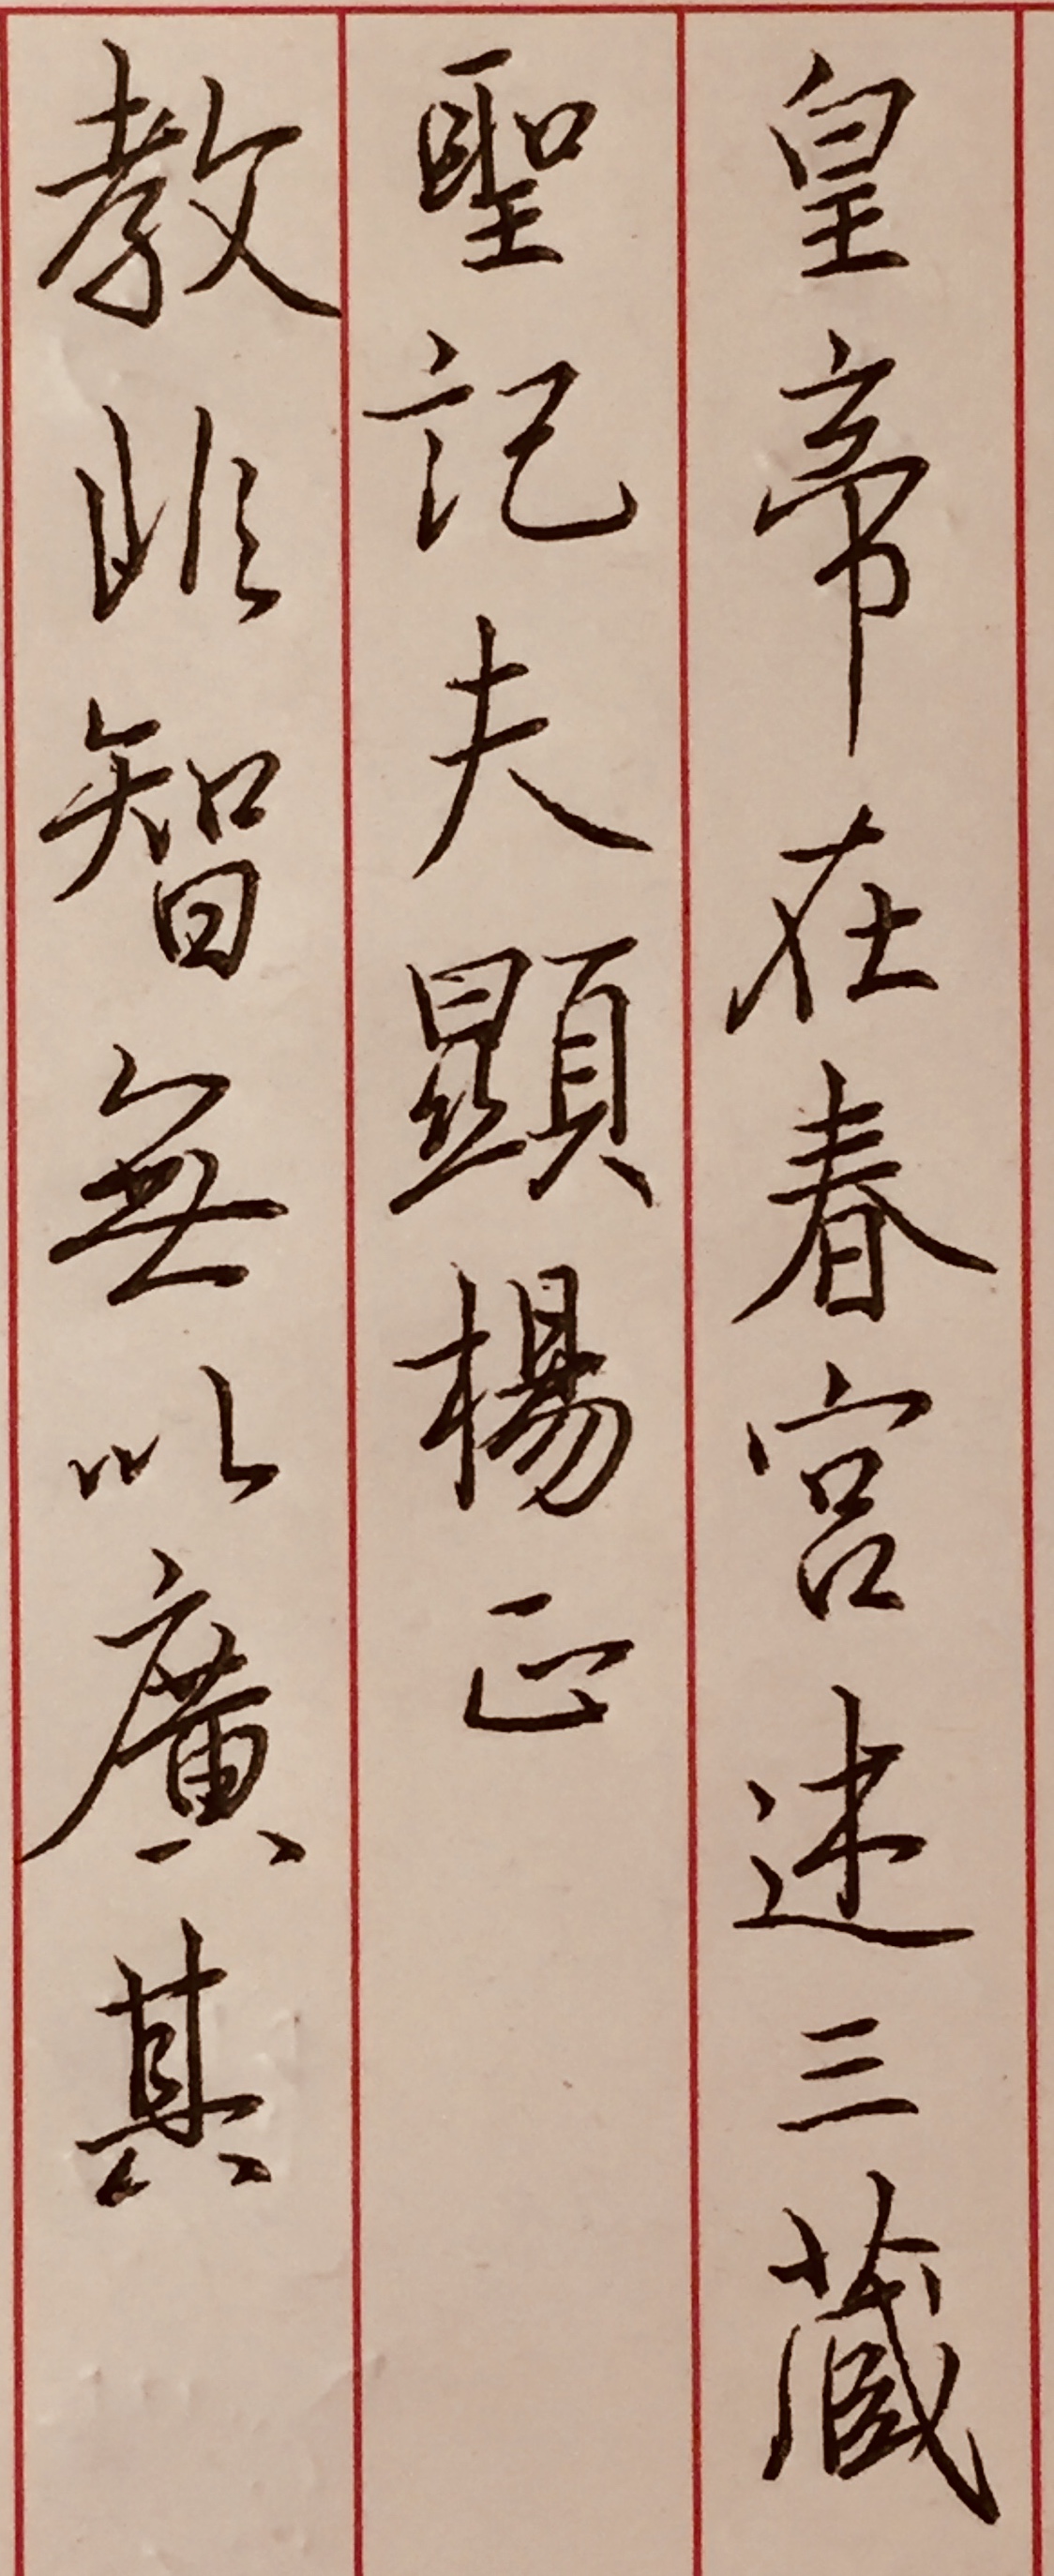 皇帝在春宮述三藏
聖記夫顯楊正
教非智無以廣其